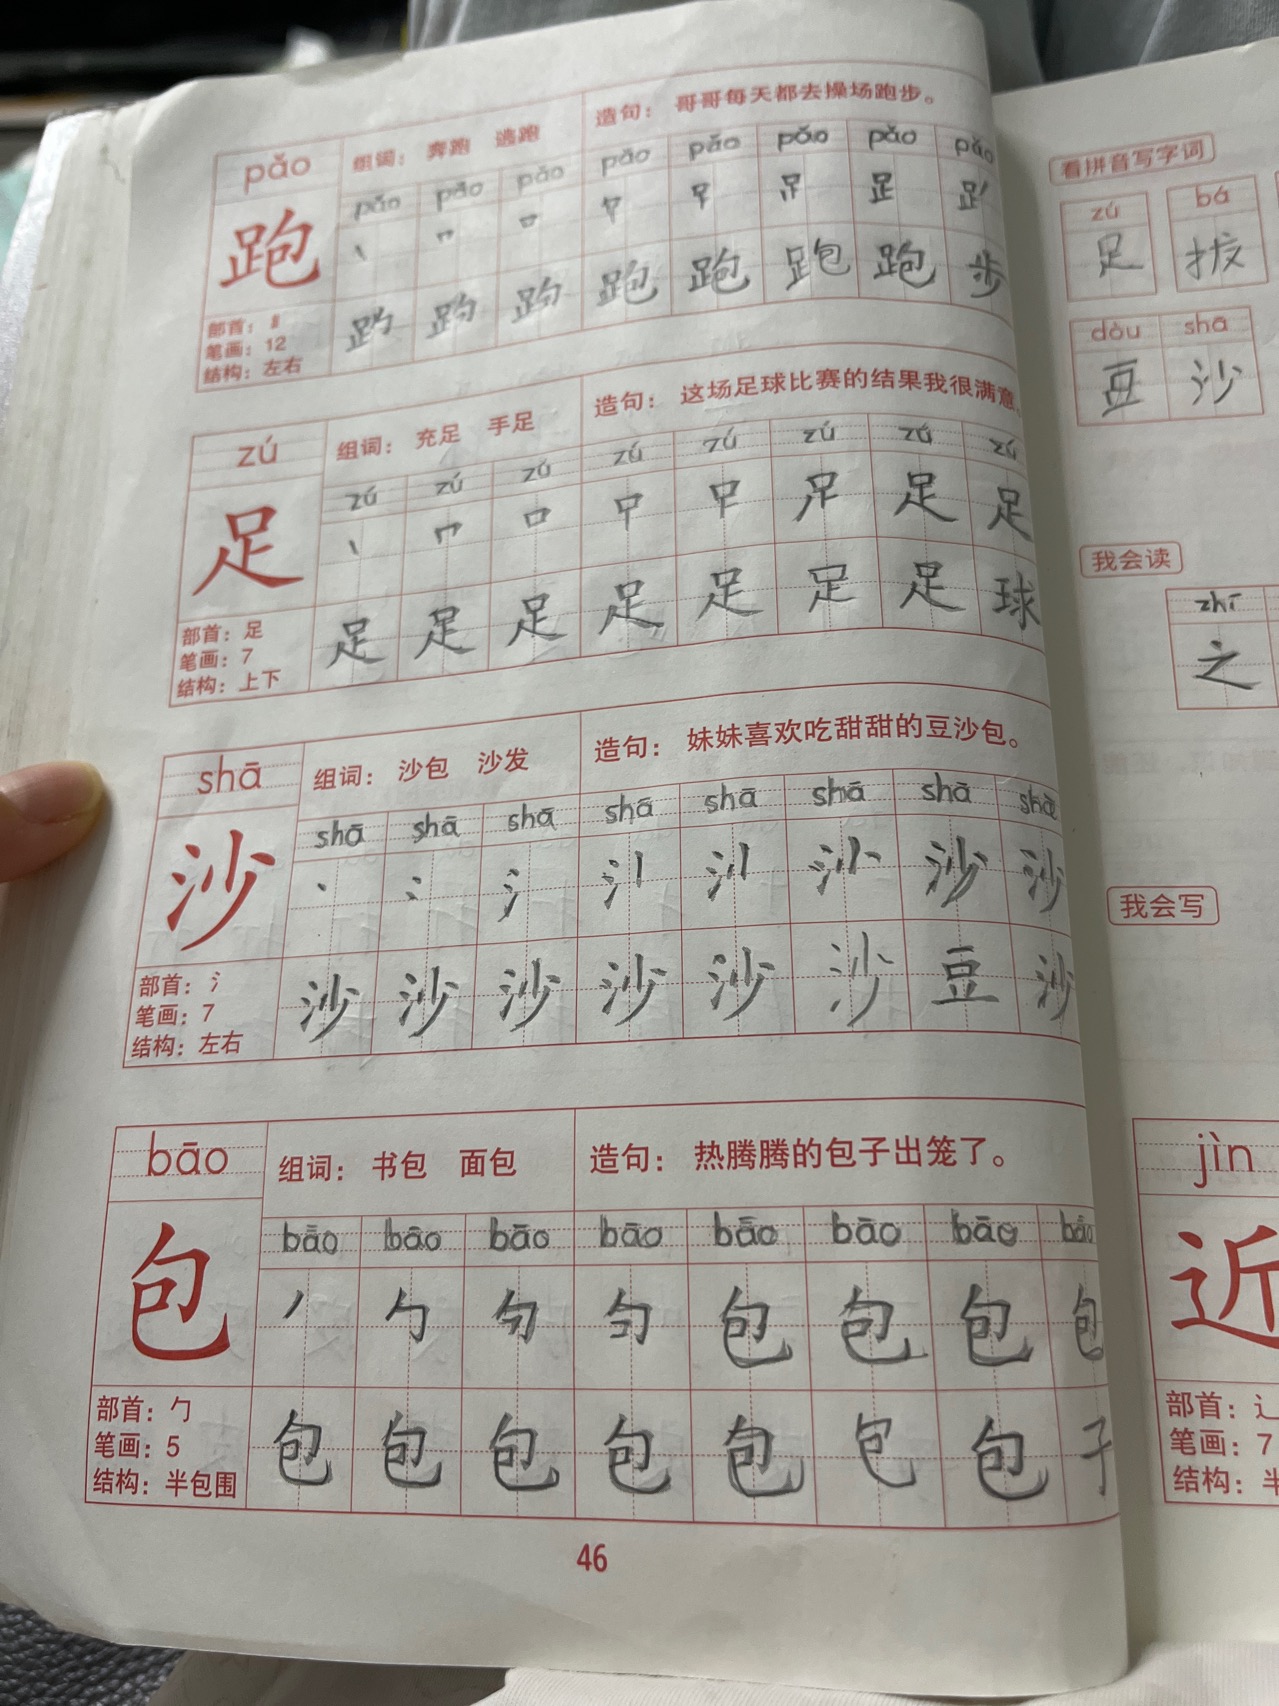 pǎo 组词： 奔跑 逃跑 造句： 哥哥每天都去操场跑步。
pǎo pǎo pǎo pǎo pǎo pǎo pǎo pǎo
跑
跑 跑 跑 跑 步
部首：
笔画：12
结构：左右
zú 组词： 充足 手足 造句： 这场足球比赛的结果我很满意。
zú zú zú zú zú zú zú zú
足 足 足
足 足 足 足 足 足 足 球
部首：足
笔画：7
结构：上下
shā 组词： 沙包 沙发 造句： 妹妹喜欢吃甜甜的豆沙包。
shā shā shā shā shā shā shā shā
沙 沙 沙
沙 沙 沙 沙 沙 沙 豆 沙
部首：氵
笔画：7
结构：左右
bāo 组词： 书包 面包 造句： 热腾腾的包子出笼了。
bāo bāo bāo bāo bāo bāo bāo bāo
包 勹 包 包 包 包
包 包 包 包 包 包 包 子
部首：勹
笔画：5
结构：半包围
46
看拼音写字词
zú bá
足 拔
dòu shā
豆 沙
我会读
zhī
之
我会写
jìn
近
部首：辶
笔画：7
结构：半